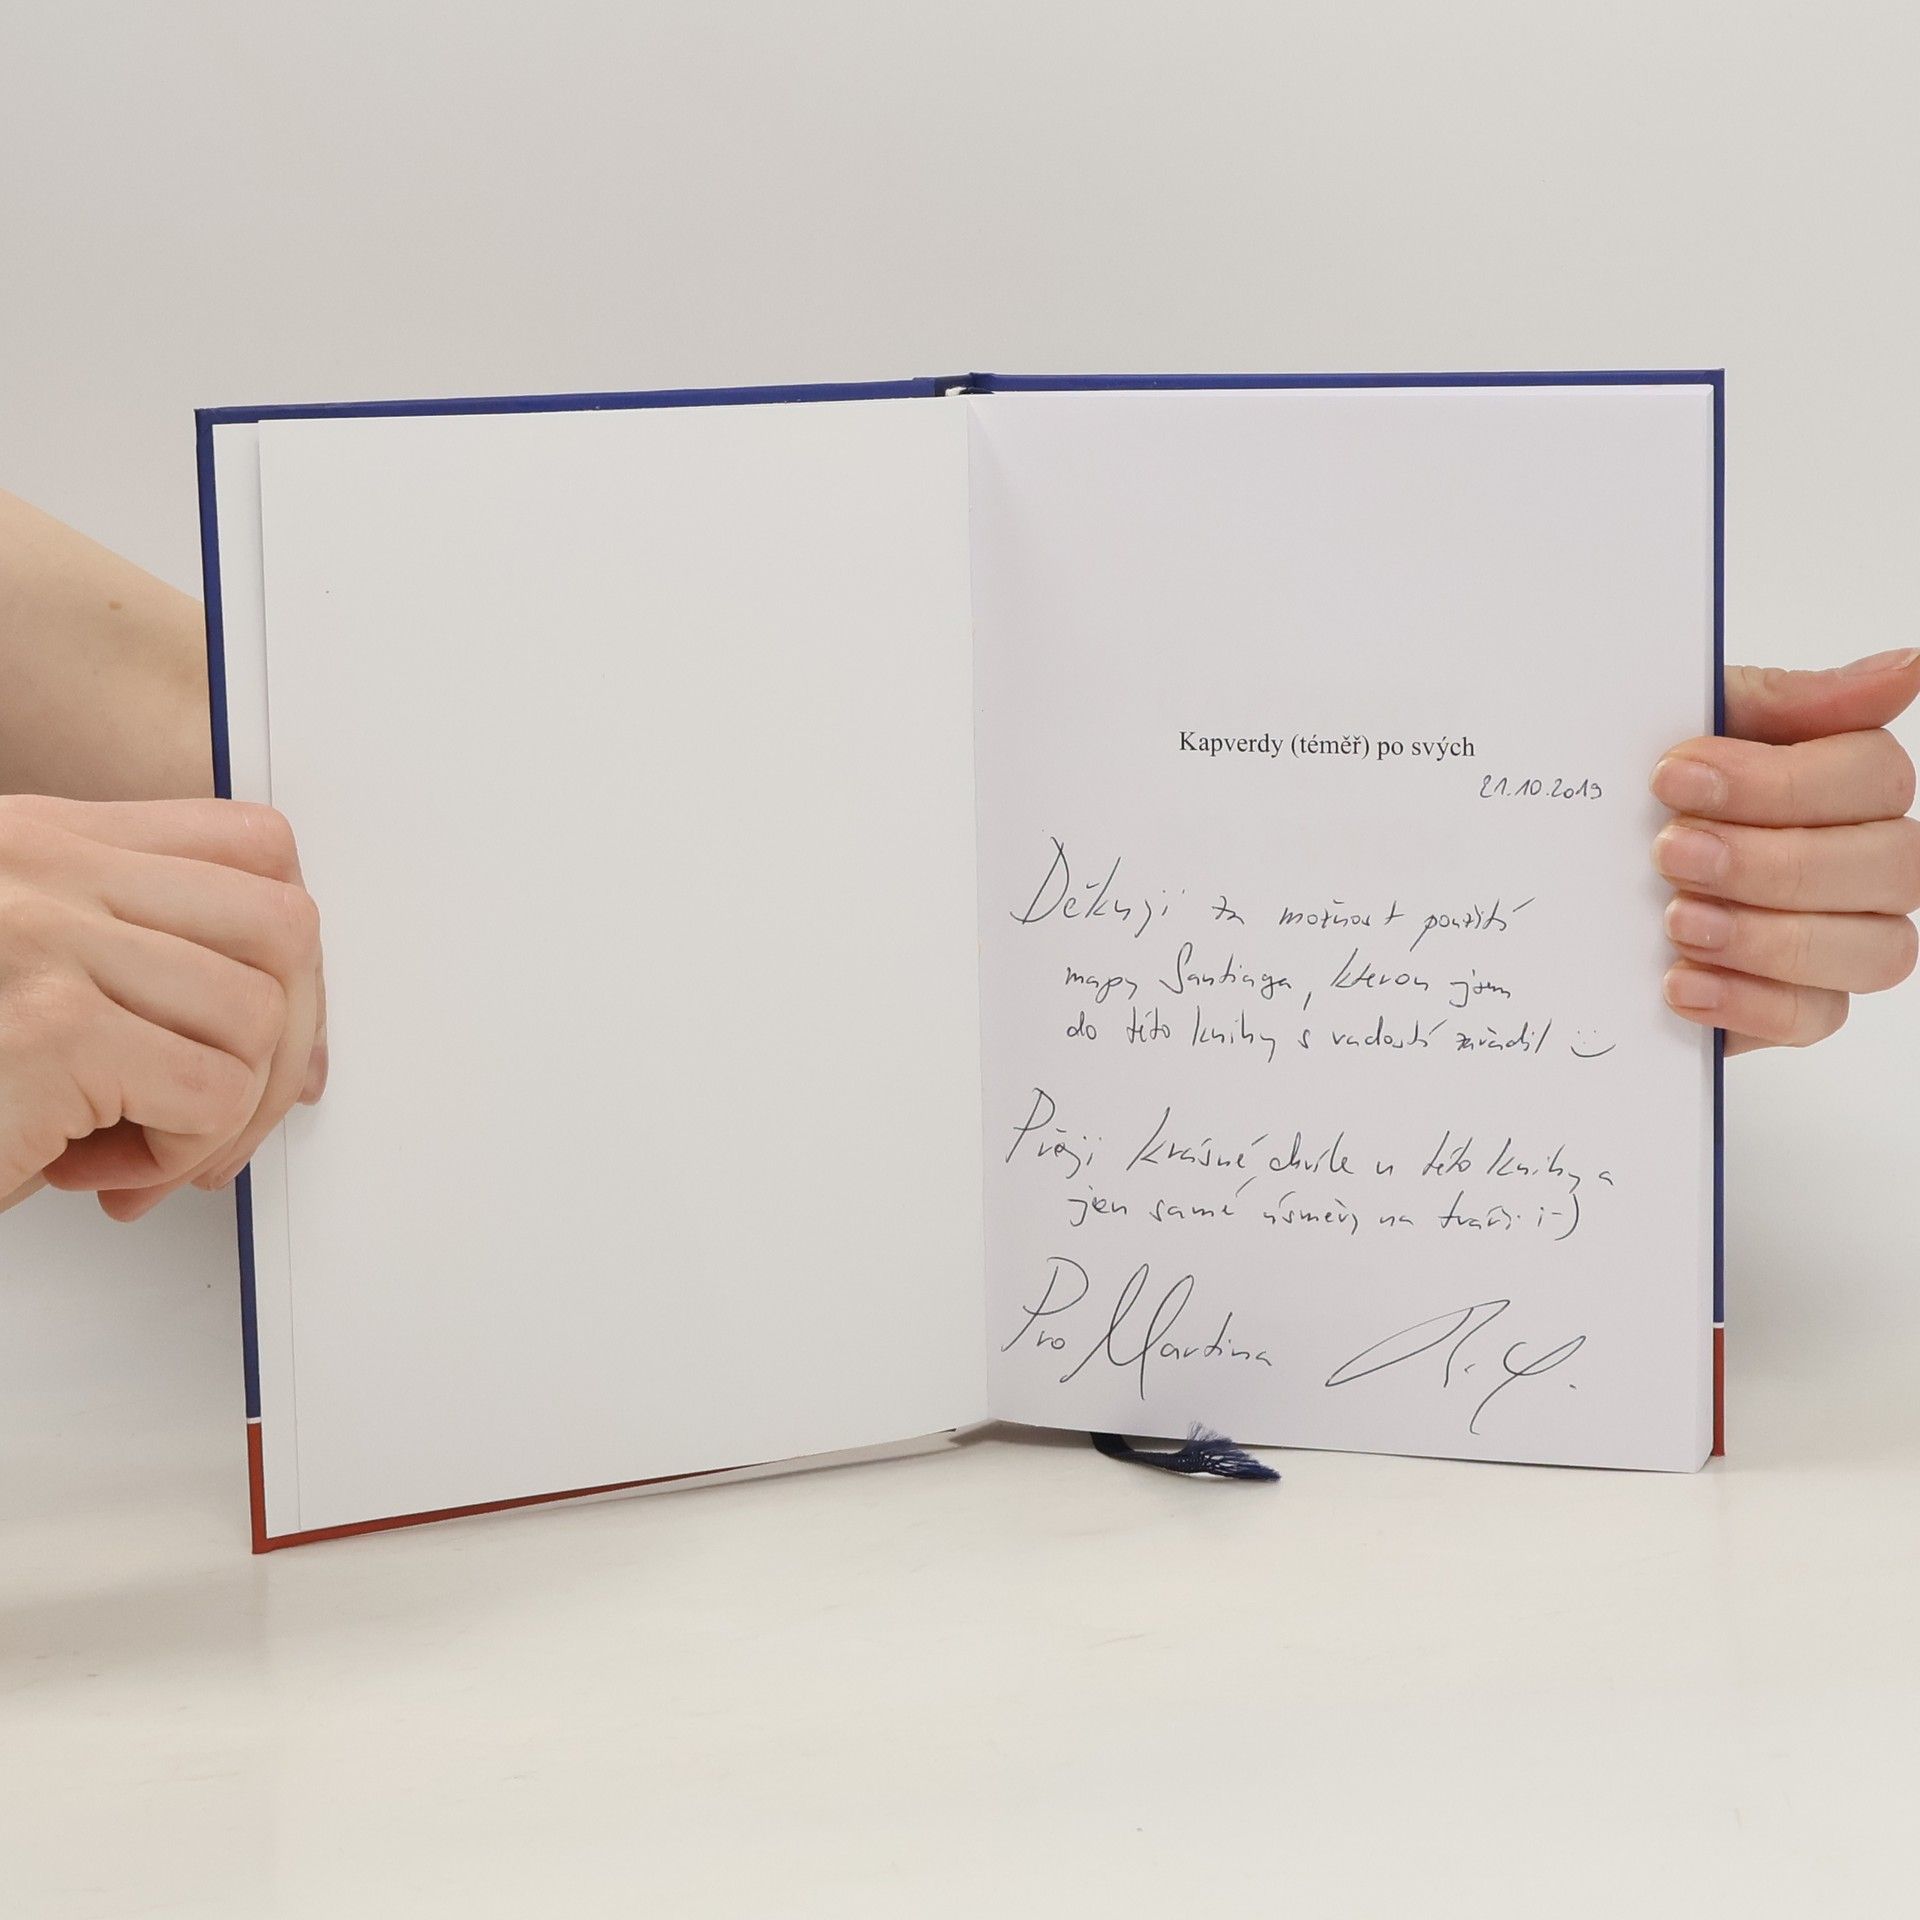 Kapverdy (téměř) po svých
21.10.2019
Děkuji za možnost použití
mapy Santiaga, kterou jsem
do této knihy s radostí zařadil
Přeji krásné chvíle u této knihy a
jen samé úsměvy na tváři :-)
Pro Martina